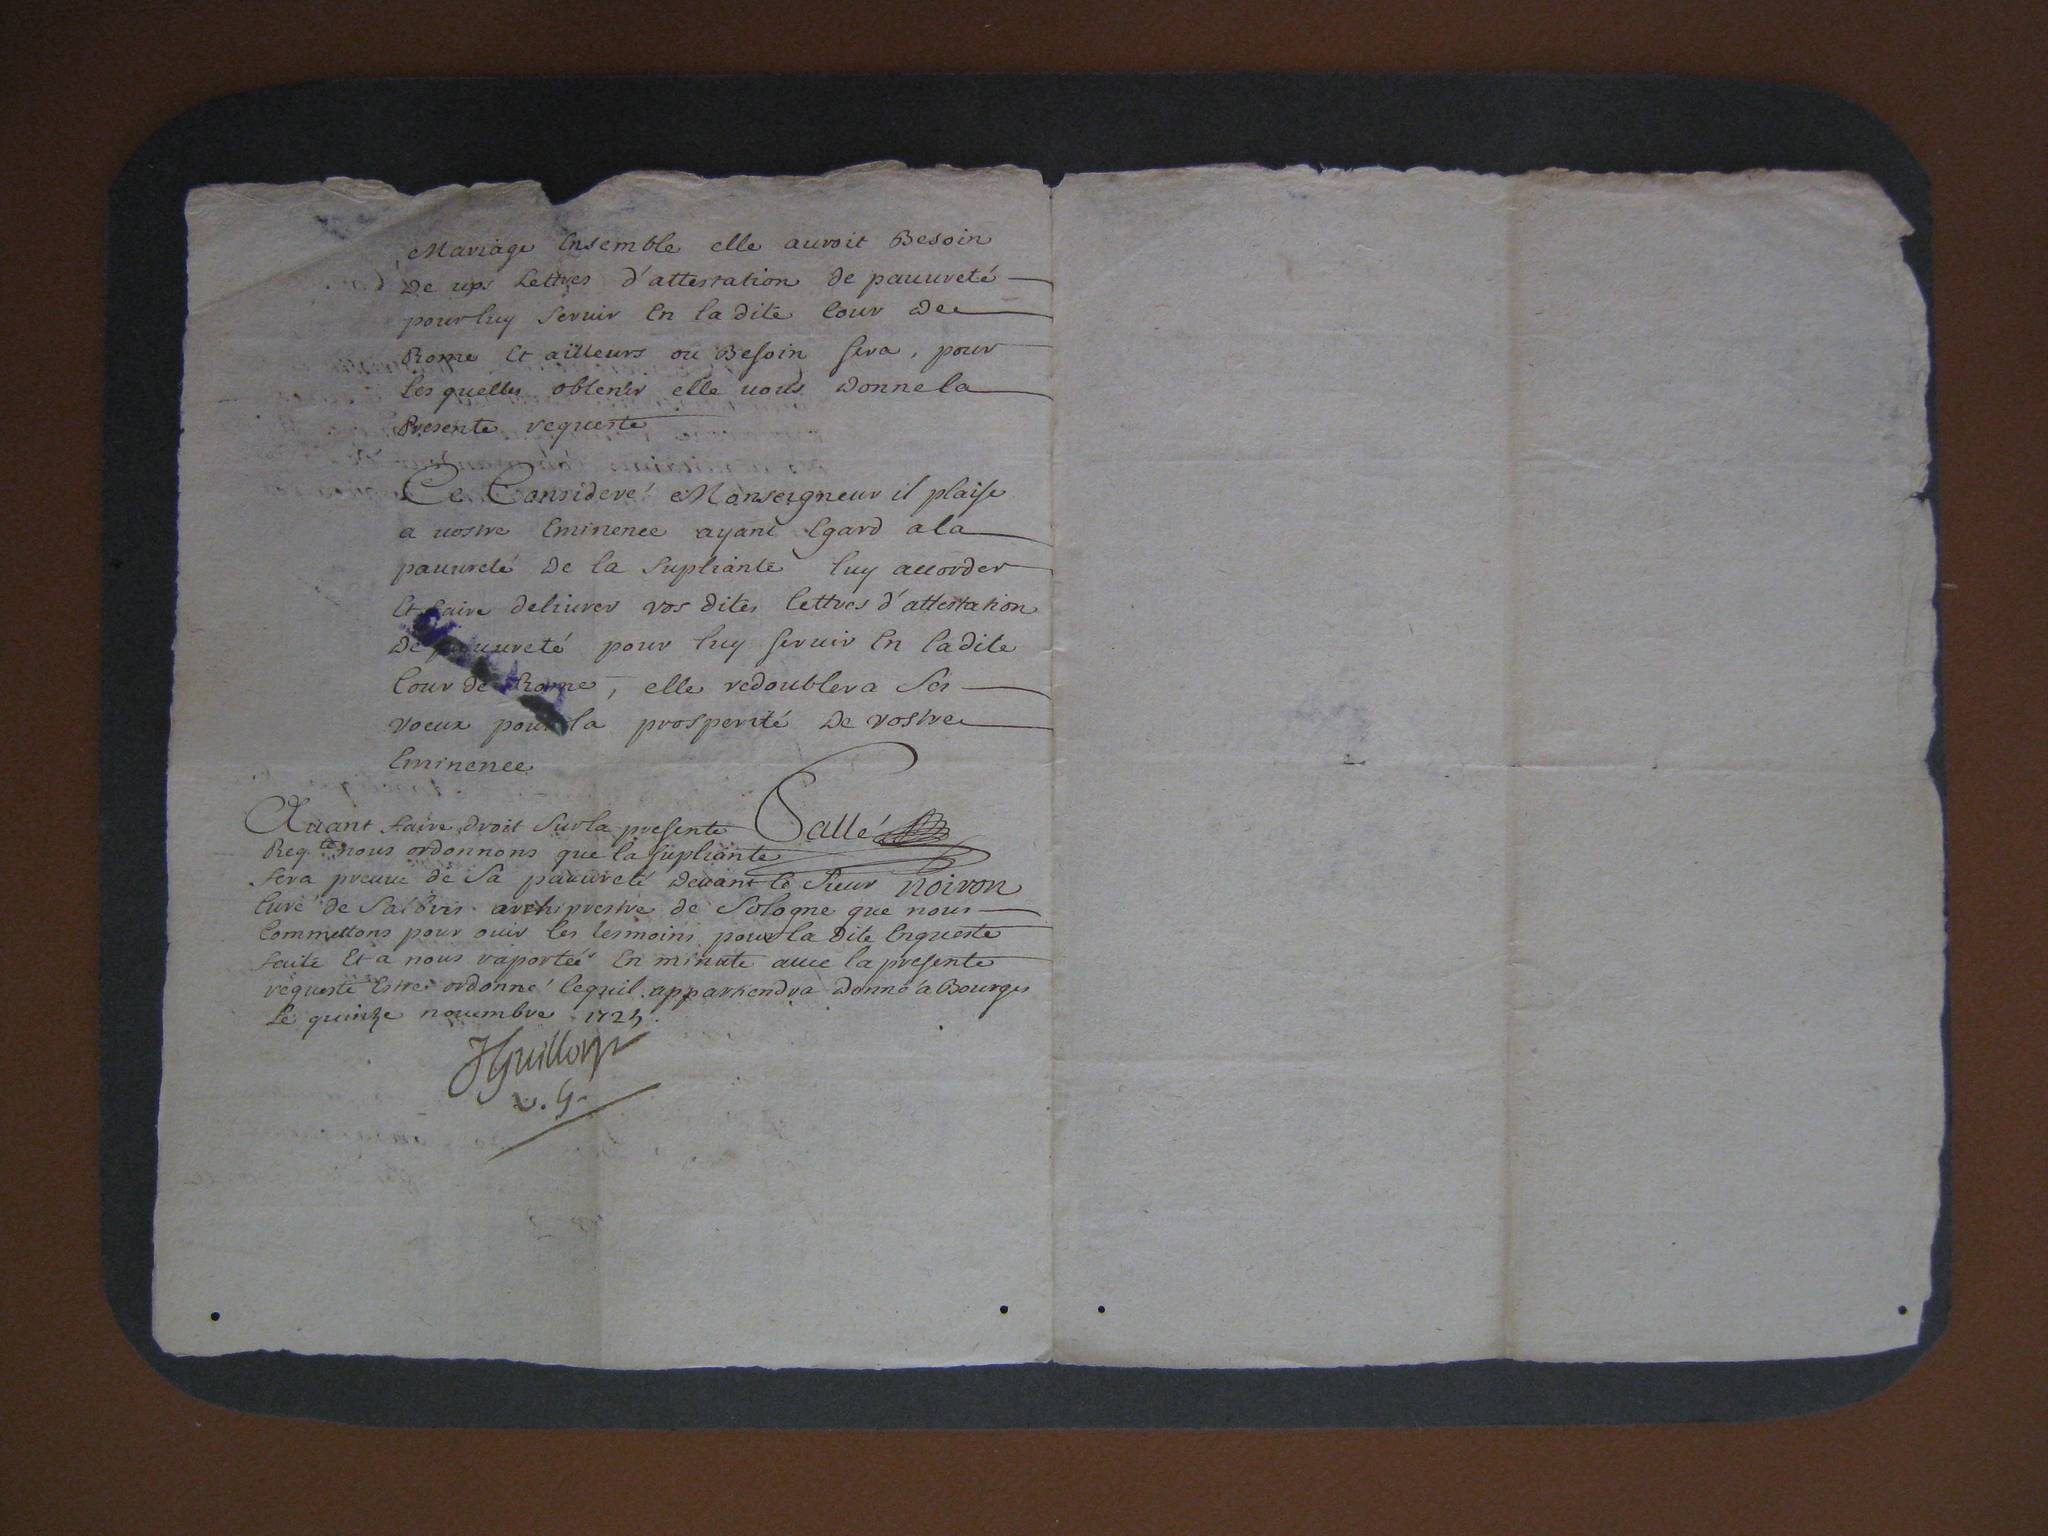 Mariage Ensemble elle auroit Besoin
De vos Lettres d'attestation de pauureté
pour luy seruir En la dite Cour De
Rome Et ailleurs ou Besoin sera, pour
Lesquelles obtenir elle vous Donne la
Presente requeste
Ce Consideré Monseigneur il plaise
a vostre Eminence ayant Egard a la
pauureté De la supliante luy accorder
Et faire deliurer vos dites lettres d'attestation
De pauureté pour luy seruir En ladite
Cour de Rome, elle redoublera ses
voeux pour la prosperité De vostre
Eminence
Sallé
Auant faire droit sur la presente
Reqte nous ordonnons que la supliante
fera preuue de sa pauureté deuant le sieur noiron
Curé de Salbris archiprestre de Sologne que nous
Commettons pour ouir les tesmoins pour la dite Enqueste
faite Et a nous raportée En minute auec la presente
requeste Estre ordonné ce qu'il appartiendra Donné a Bourges
Le quinze nouembre 1725.
v. G.